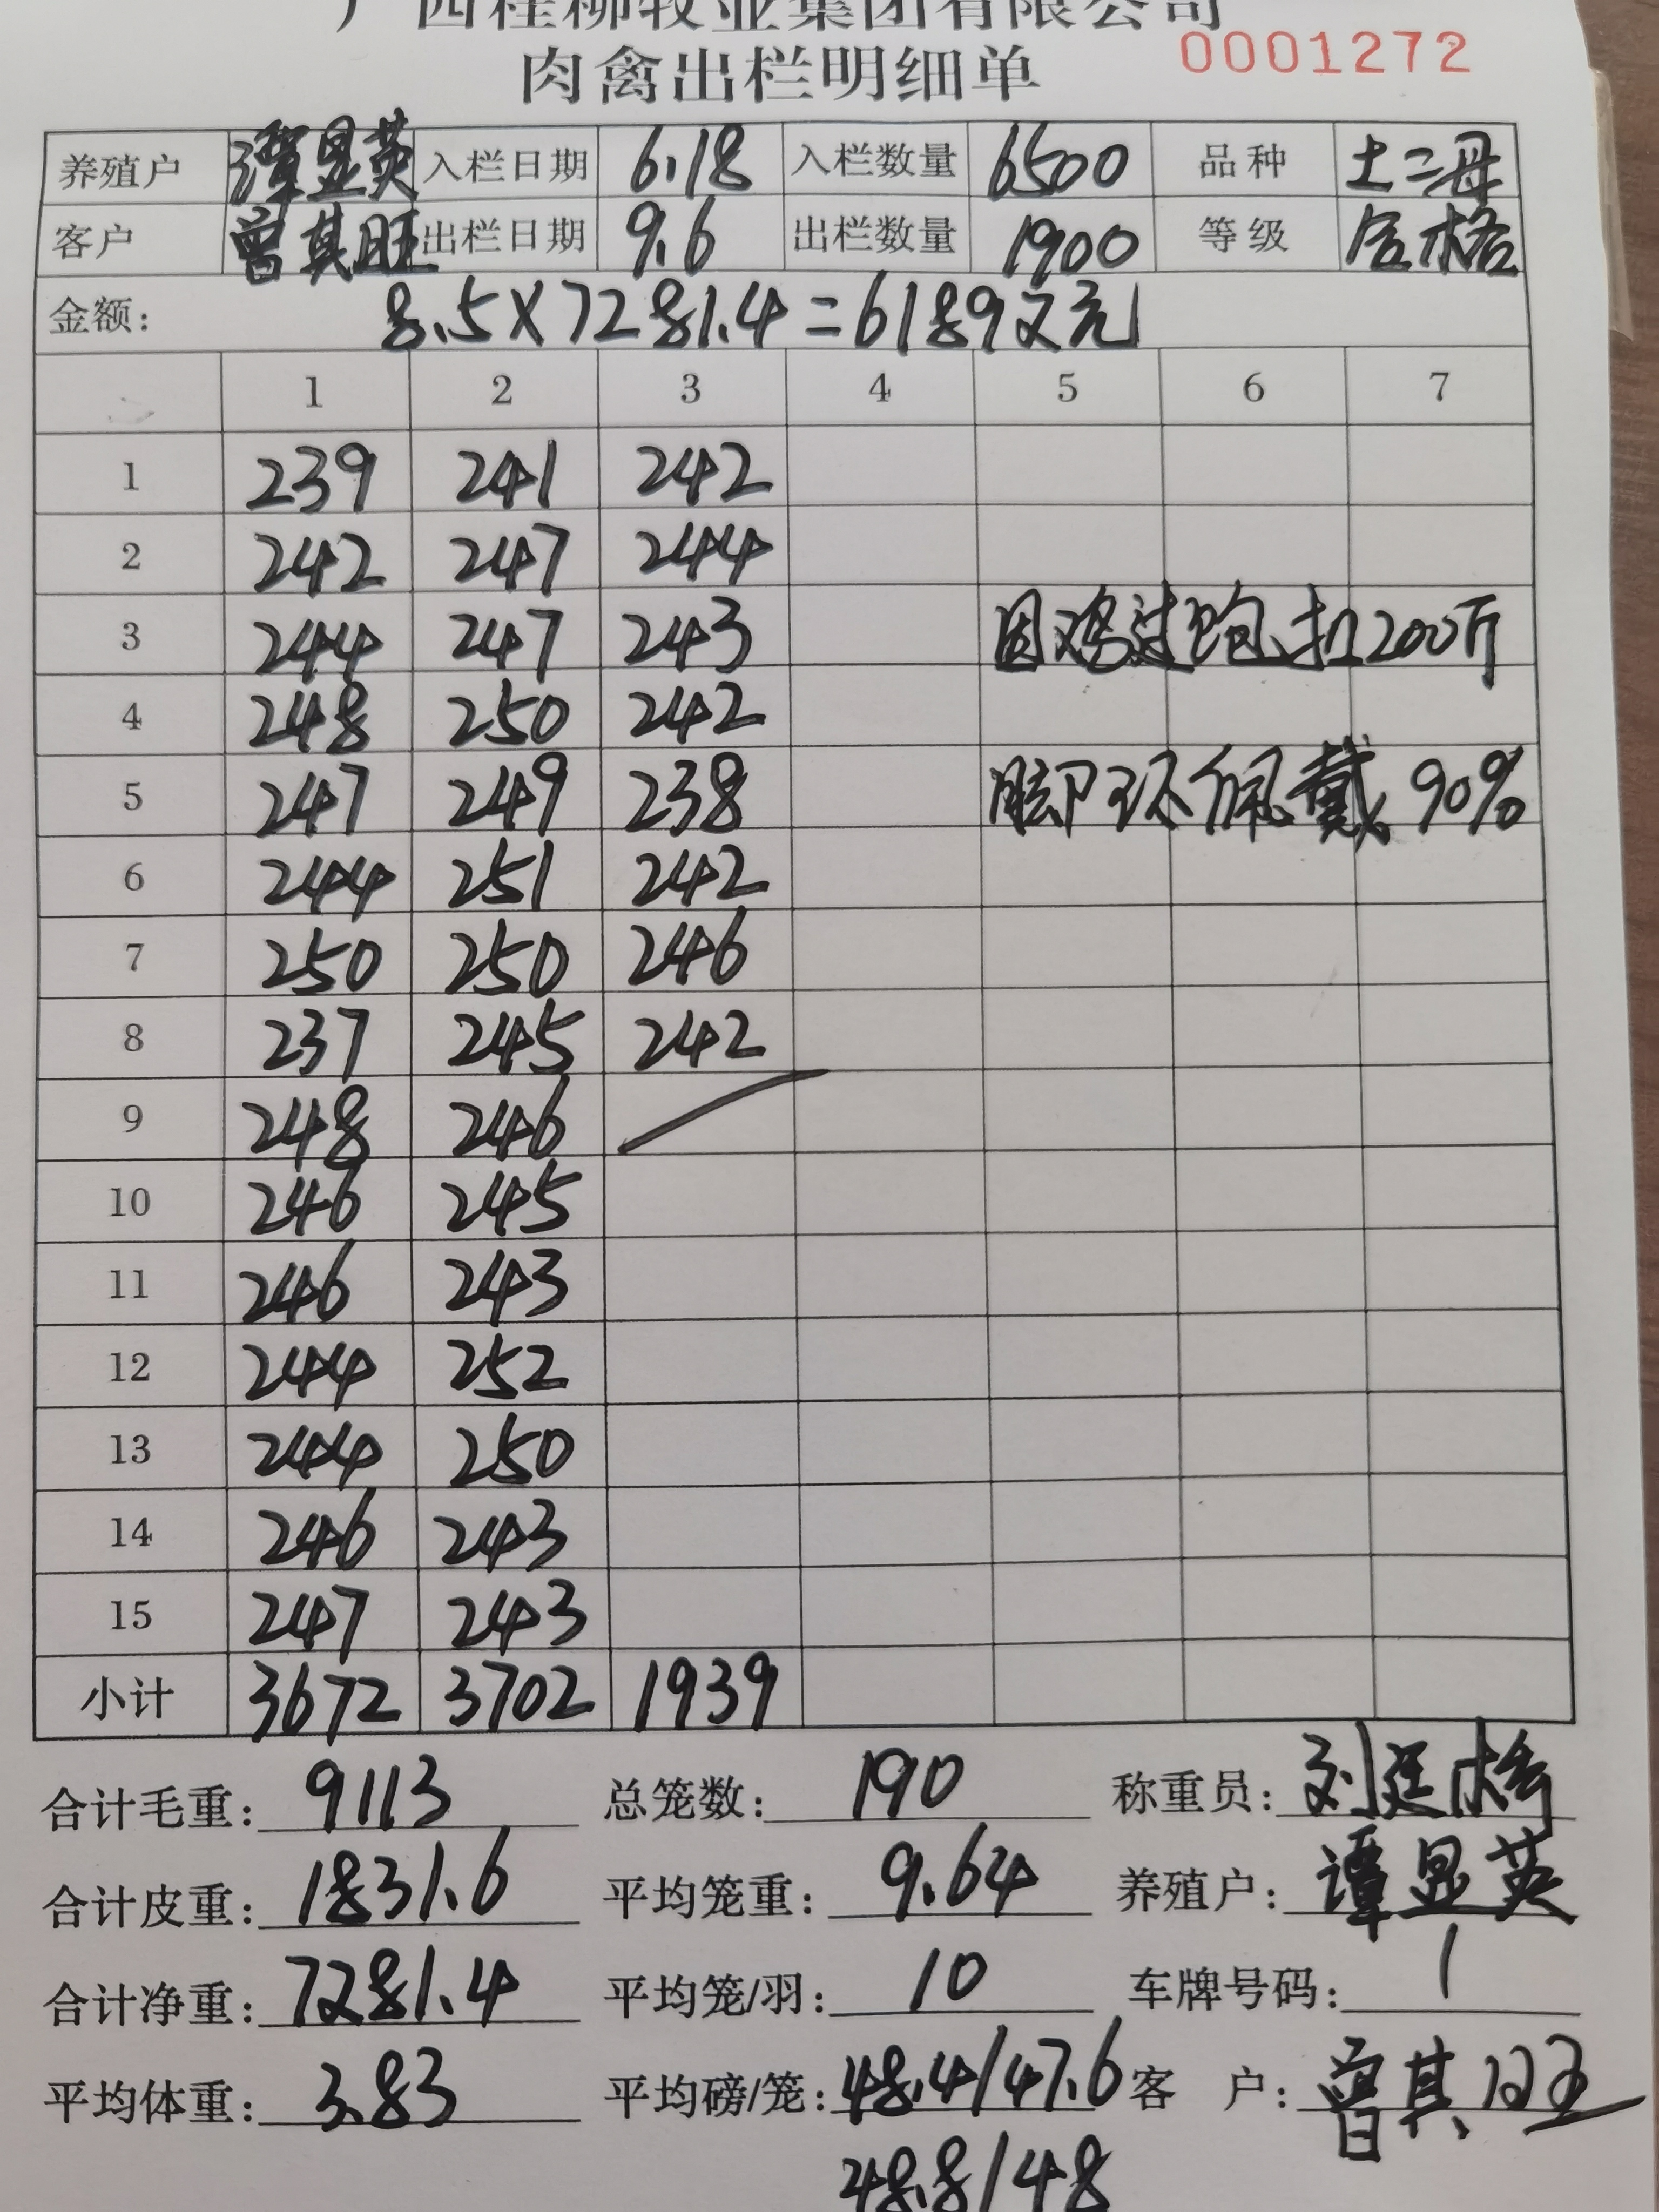 广西桂柳牧业集团有限公司
肉禽出栏明细单 0001272
养殖户 谭显英 入栏日期 6.18 入栏数量 6500 品种 土二母
客户 曾其旺 出栏日期 9.6 出栏数量 1900 等级 合格
金额: 8.5×7281.4=61892元
1 2 3 4 5 6 7
1 239 241 242
2 242 247 244
3 244 247 243 因鸡过饱、扣200斤
4 248 250 242
5 247 249 238 脚环佩戴90%
6 244 251 242
7 250 250 246
8 237 245 242
9 248 246
10 246 245
11 246 243
12 244 252
13 244 250
14 246 243
15 247 243
小计 3672 3702 1939
合计毛重: 9113 总笼数: 190 称重员: 刘廷
合计皮重: 1831.6 平均笼重: 9.64 养殖户: 谭显英
合计净重: 7281.4 平均笼/羽: 10 车牌号码: 1
平均体重: 3.83 平均磅/笼: 48.4/47.6 客 户: 曾其旺
48.8/48